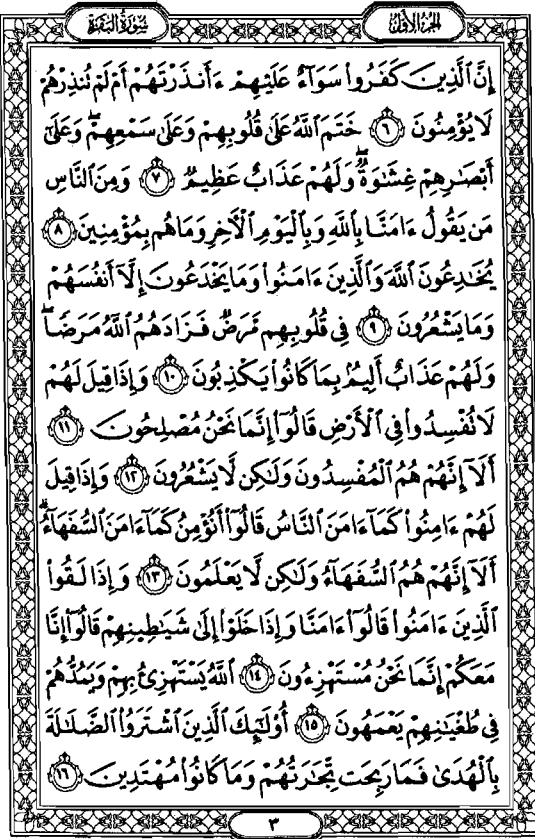 سُورَةُ البَقَرَةِ
الجُزءُ الأَوَّلُ
إِنَّ ٱلَّذِينَ كَفَرُوا۟ سَوَآءٌ عَلَيْهِمْ ءَأَنذَرْتَهُمْ أَمْ لَمْ تُنذِرْهُمْ
لَا يُؤْمِنُونَ ٦ خَتَمَ ٱللَّهُ عَلَىٰ قُلُوبِهِمْ وَعَلَىٰ سَمْعِهِمْ ۖ وَعَلَىٰٓ
أَبْصَٰرِهِمْ غِشَٰوَةٌ ۖ وَلَهُمْ عَذَابٌ عَظِيمٌ ٧ وَمِنَ ٱلنَّاسِ
مَن يَقُولُ ءَامَنَّا بِٱللَّهِ وَبِٱلْيَوْمِ ٱلْءَاخِرِ وَمَا هُم بِمُؤْمِنِينَ ٨
يُخَٰدِعُونَ ٱللَّهَ وَٱلَّذِينَ ءَامَنُوا۟ وَمَا يَخْدَعُونَ إِلَّآ أَنفُسَهُمْ
وَمَا يَشْعُرُونَ ٩ فِى قُلُوبِهِم مَّرَضٌ فَزَادَهُمُ ٱللَّهُ مَرَضًا ۖ
وَلَهُمْ عَذَابٌ أَلِيمٌۢ بِمَا كَانُوا۟ يَكْذِبُونَ ١٠ وَإِذَا قِيلَ لَهُمْ
لَا تُفْسِدُوا۟ فِى ٱلْأَرْضِ قَالُوٓا۟ إِنَّمَا نَحْنُ مُصْلِحُونَ ١١
أَلَآ إِنَّهُمْ هُمُ ٱلْمُفْسِدُونَ وَلَٰكِن لَّا يَشْعُرُونَ ١٢ وَإِذَا قِيلَ
لَهُمْ ءَامِنُوا۟ كَمَآ ءَامَنَ ٱلنَّاسُ قَالُوٓا۟ أَنُؤْمِنُ كَمَآ ءَامَنَ ٱلسُّفَهَآءُ ۗ
أَلَآ إِنَّهُمْ هُمُ ٱلسُّفَهَآءُ وَلَٰكِن لَّا يَعْلَمُونَ ١٣ وَإِذَا لَقُوا۟
ٱلَّذِينَ ءَامَنُوا۟ قَالُوٓا۟ ءَامَنَّا وَإِذَا خَلَوْا۟ إِلَىٰ شَيَٰطِينِهِمْ قَالُوٓا۟ إِنَّا
مَعَكُمْ إِنَّمَا نَحْنُ مُسْتَهْزِءُونَ ١٤ ٱللَّهُ يَسْتَهْزِئُ بِهِمْ وَيَمُدُّهُمْ
فِى طُغْيَٰنِهِمْ يَعْمَهُونَ ١٥ أُو۟لَٰٓئِكَ ٱلَّذِينَ ٱشْتَرَوُا۟ ٱلضَّلَٰلَةَ
بِٱلْهُدَىٰ فَمَا رَبِحَت تِّجَٰرَتُهُمْ وَمَا كَانُوا۟ مُهْتَدِينَ ١٦
٣